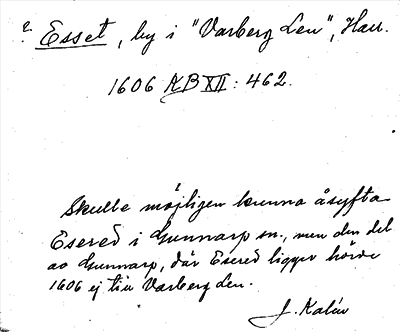 ? Esset, by i "Varberg Len", Hall.
1606 KB XII: 462.
Skulle möjligen kunna åsyfta
Esered i Gunnarp sn., men den del
av Gunnarp, där Esered ligger hörde
1606 ej till Varberg Len.
J. Kalén